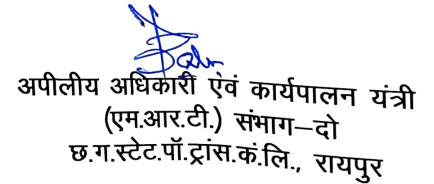 अपीलीय अधिकारी एंव कार्यपालन यंत्री
(एम.आर.टी.) संभाग–दो
छ.ग.स्टेट.पॉ.ट्रांस.कं.लि., रायपुर